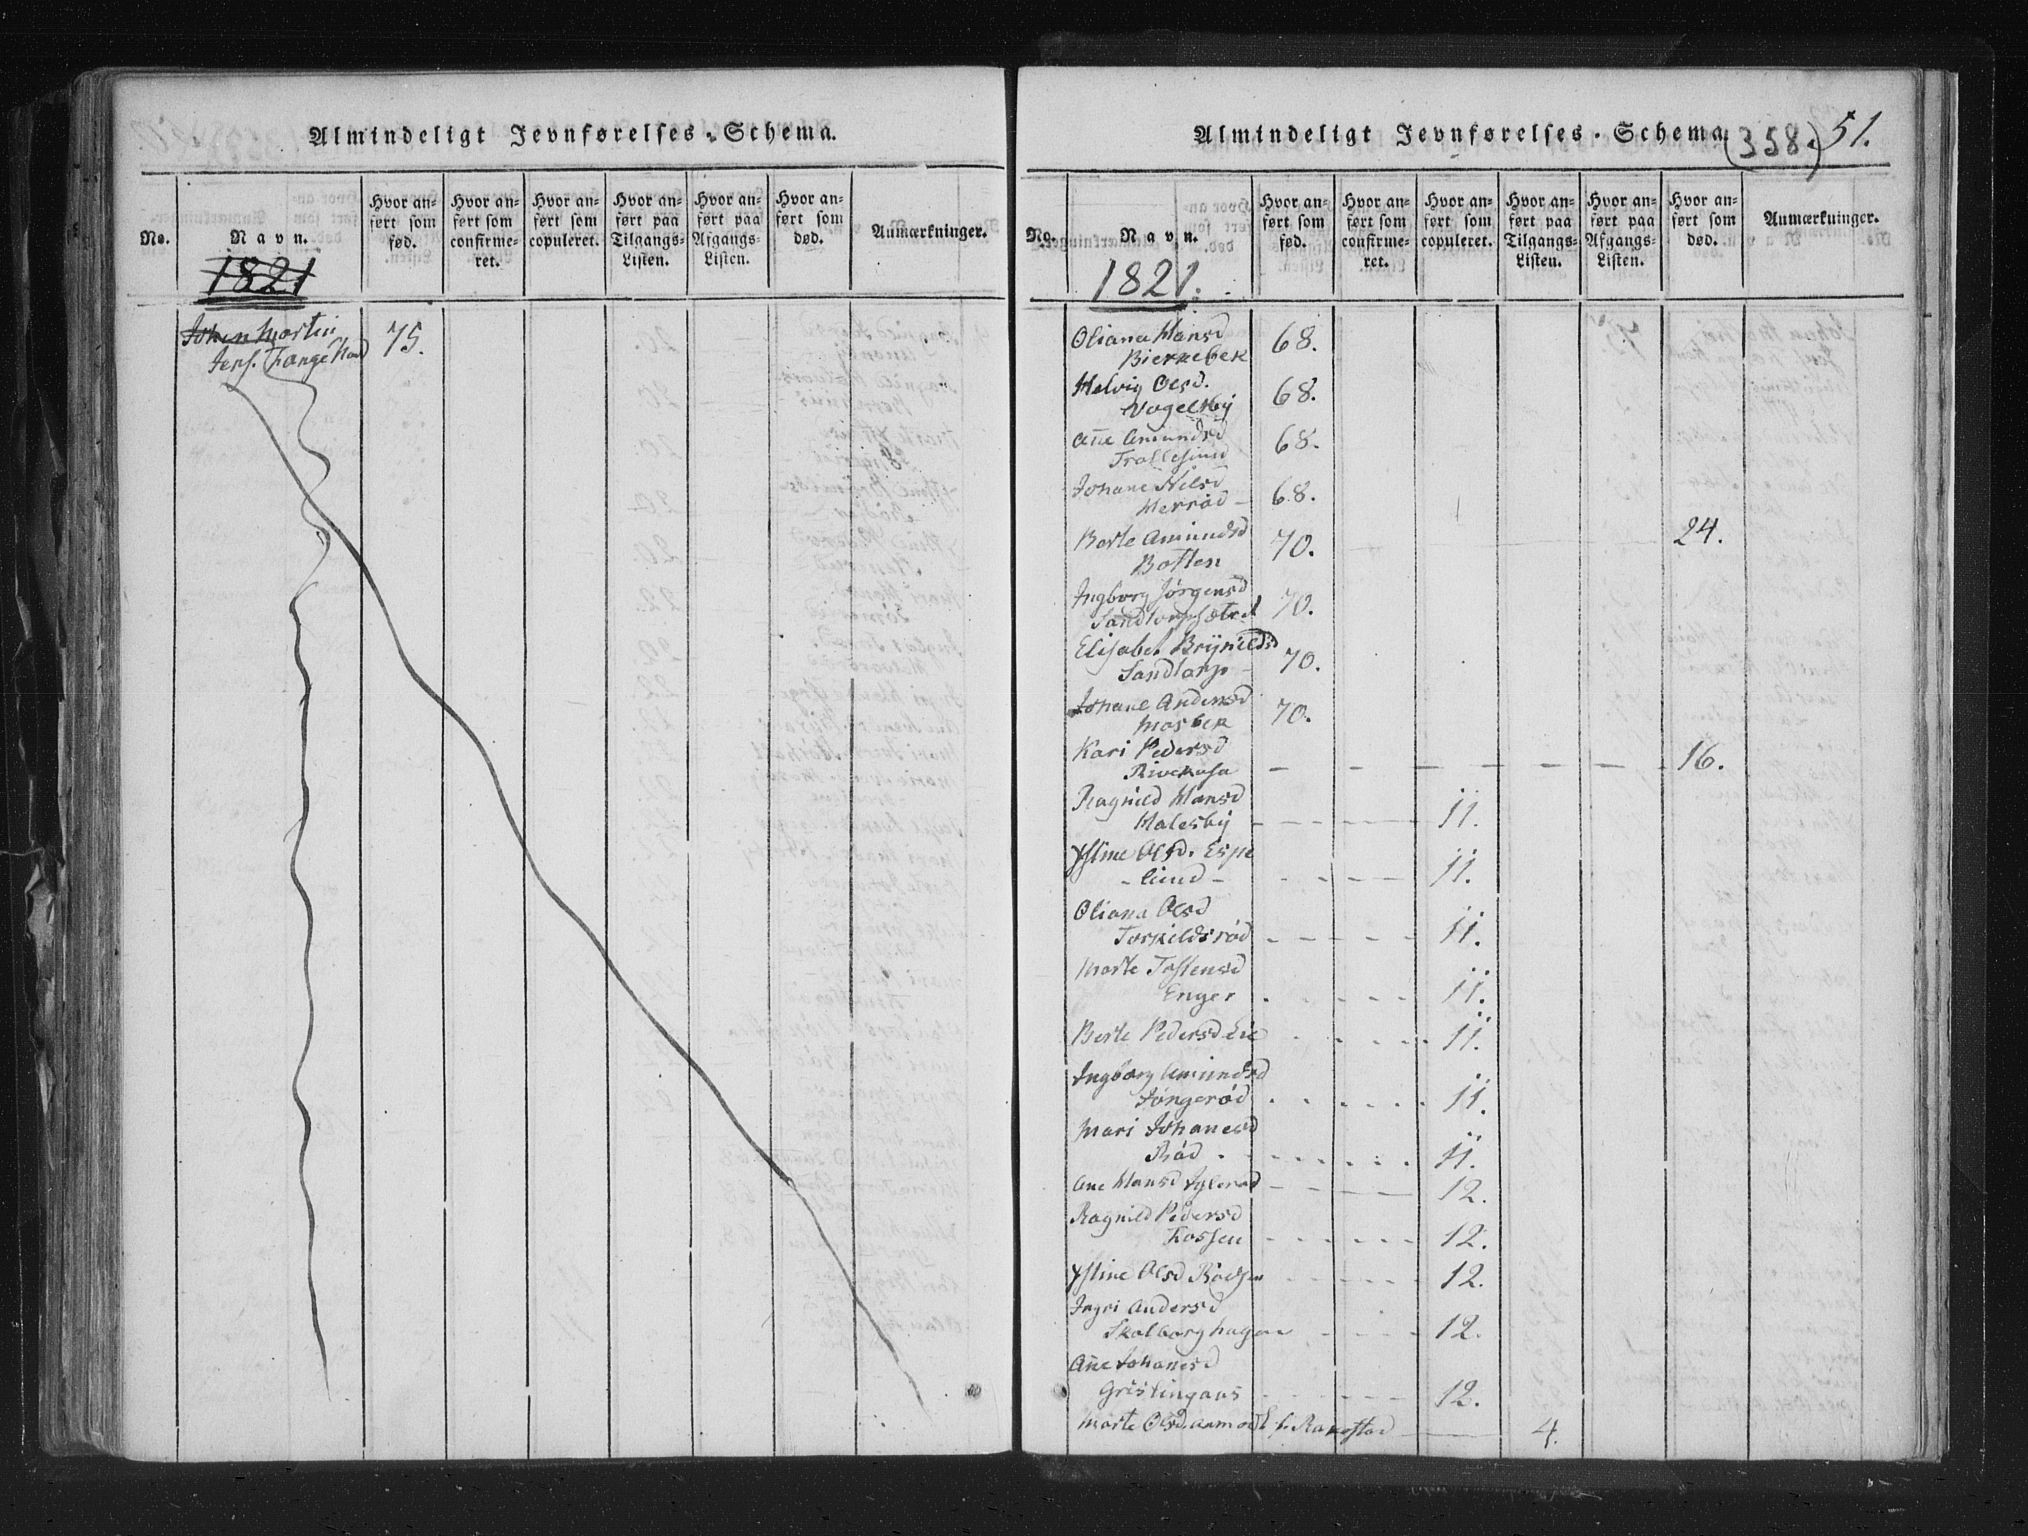 Almindeligt Jevnførelses-Schema.
No.
Navn.
Hvor anført som fød.
Hvor anført som confirmeret.
Hvor anført som copuleret.
Hvor anført paa Tilgangs-Listen.
Hvor anført paa Afgangs-Listen.
Hvor anført som død.
Anmærkninger.
1821
Johan Martin
Jens. Tange 75.
Almindeligt Jevnførelses-Schema.
(358.) 51.
No.
Navn.
Hvor anført som fød.
Hvor anført som confirmeret.
Hvor anført som copuleret.
Hvor anført paa Tilgangs-Listen.
Hvor anført paa Afgangs-Listen.
Hvor anført som død.
Anmærkninger.
1821.
Oliana Hansd
Bierkebek 68.
Helvig Olsd.
Vogelsby 68.
Ane Amundsd
Trollesund 68.
Johane Nilsd
Herrød - 68.
Berte Amundsd
Botten 70. 24.
Ingborg Jørgensd
70.
Elisabet Brynildsd
Sandtorp - 70.
Johane Andersd
Mosbek 70.
Kari Pedersd
16.
Ragnild Hansd
Halesby 11.
Olsd. Espe
- lund - 11.
Oliana Olsd
Torkildsrød 11.
Marte Tostensd
Enger 11.
Berte Pedersd Lie 11.
Ingborg Amundsd
Jøngerød 11.
Mari Johanesd
Rød 11.
Ane Hansd 12.
Ragnild Pedersd
Fossen 12.
Olsd 12.
Ingri Andersd
Skolborghagen 12.
Ane Johanesd
12.
Marte Olsd. 4.